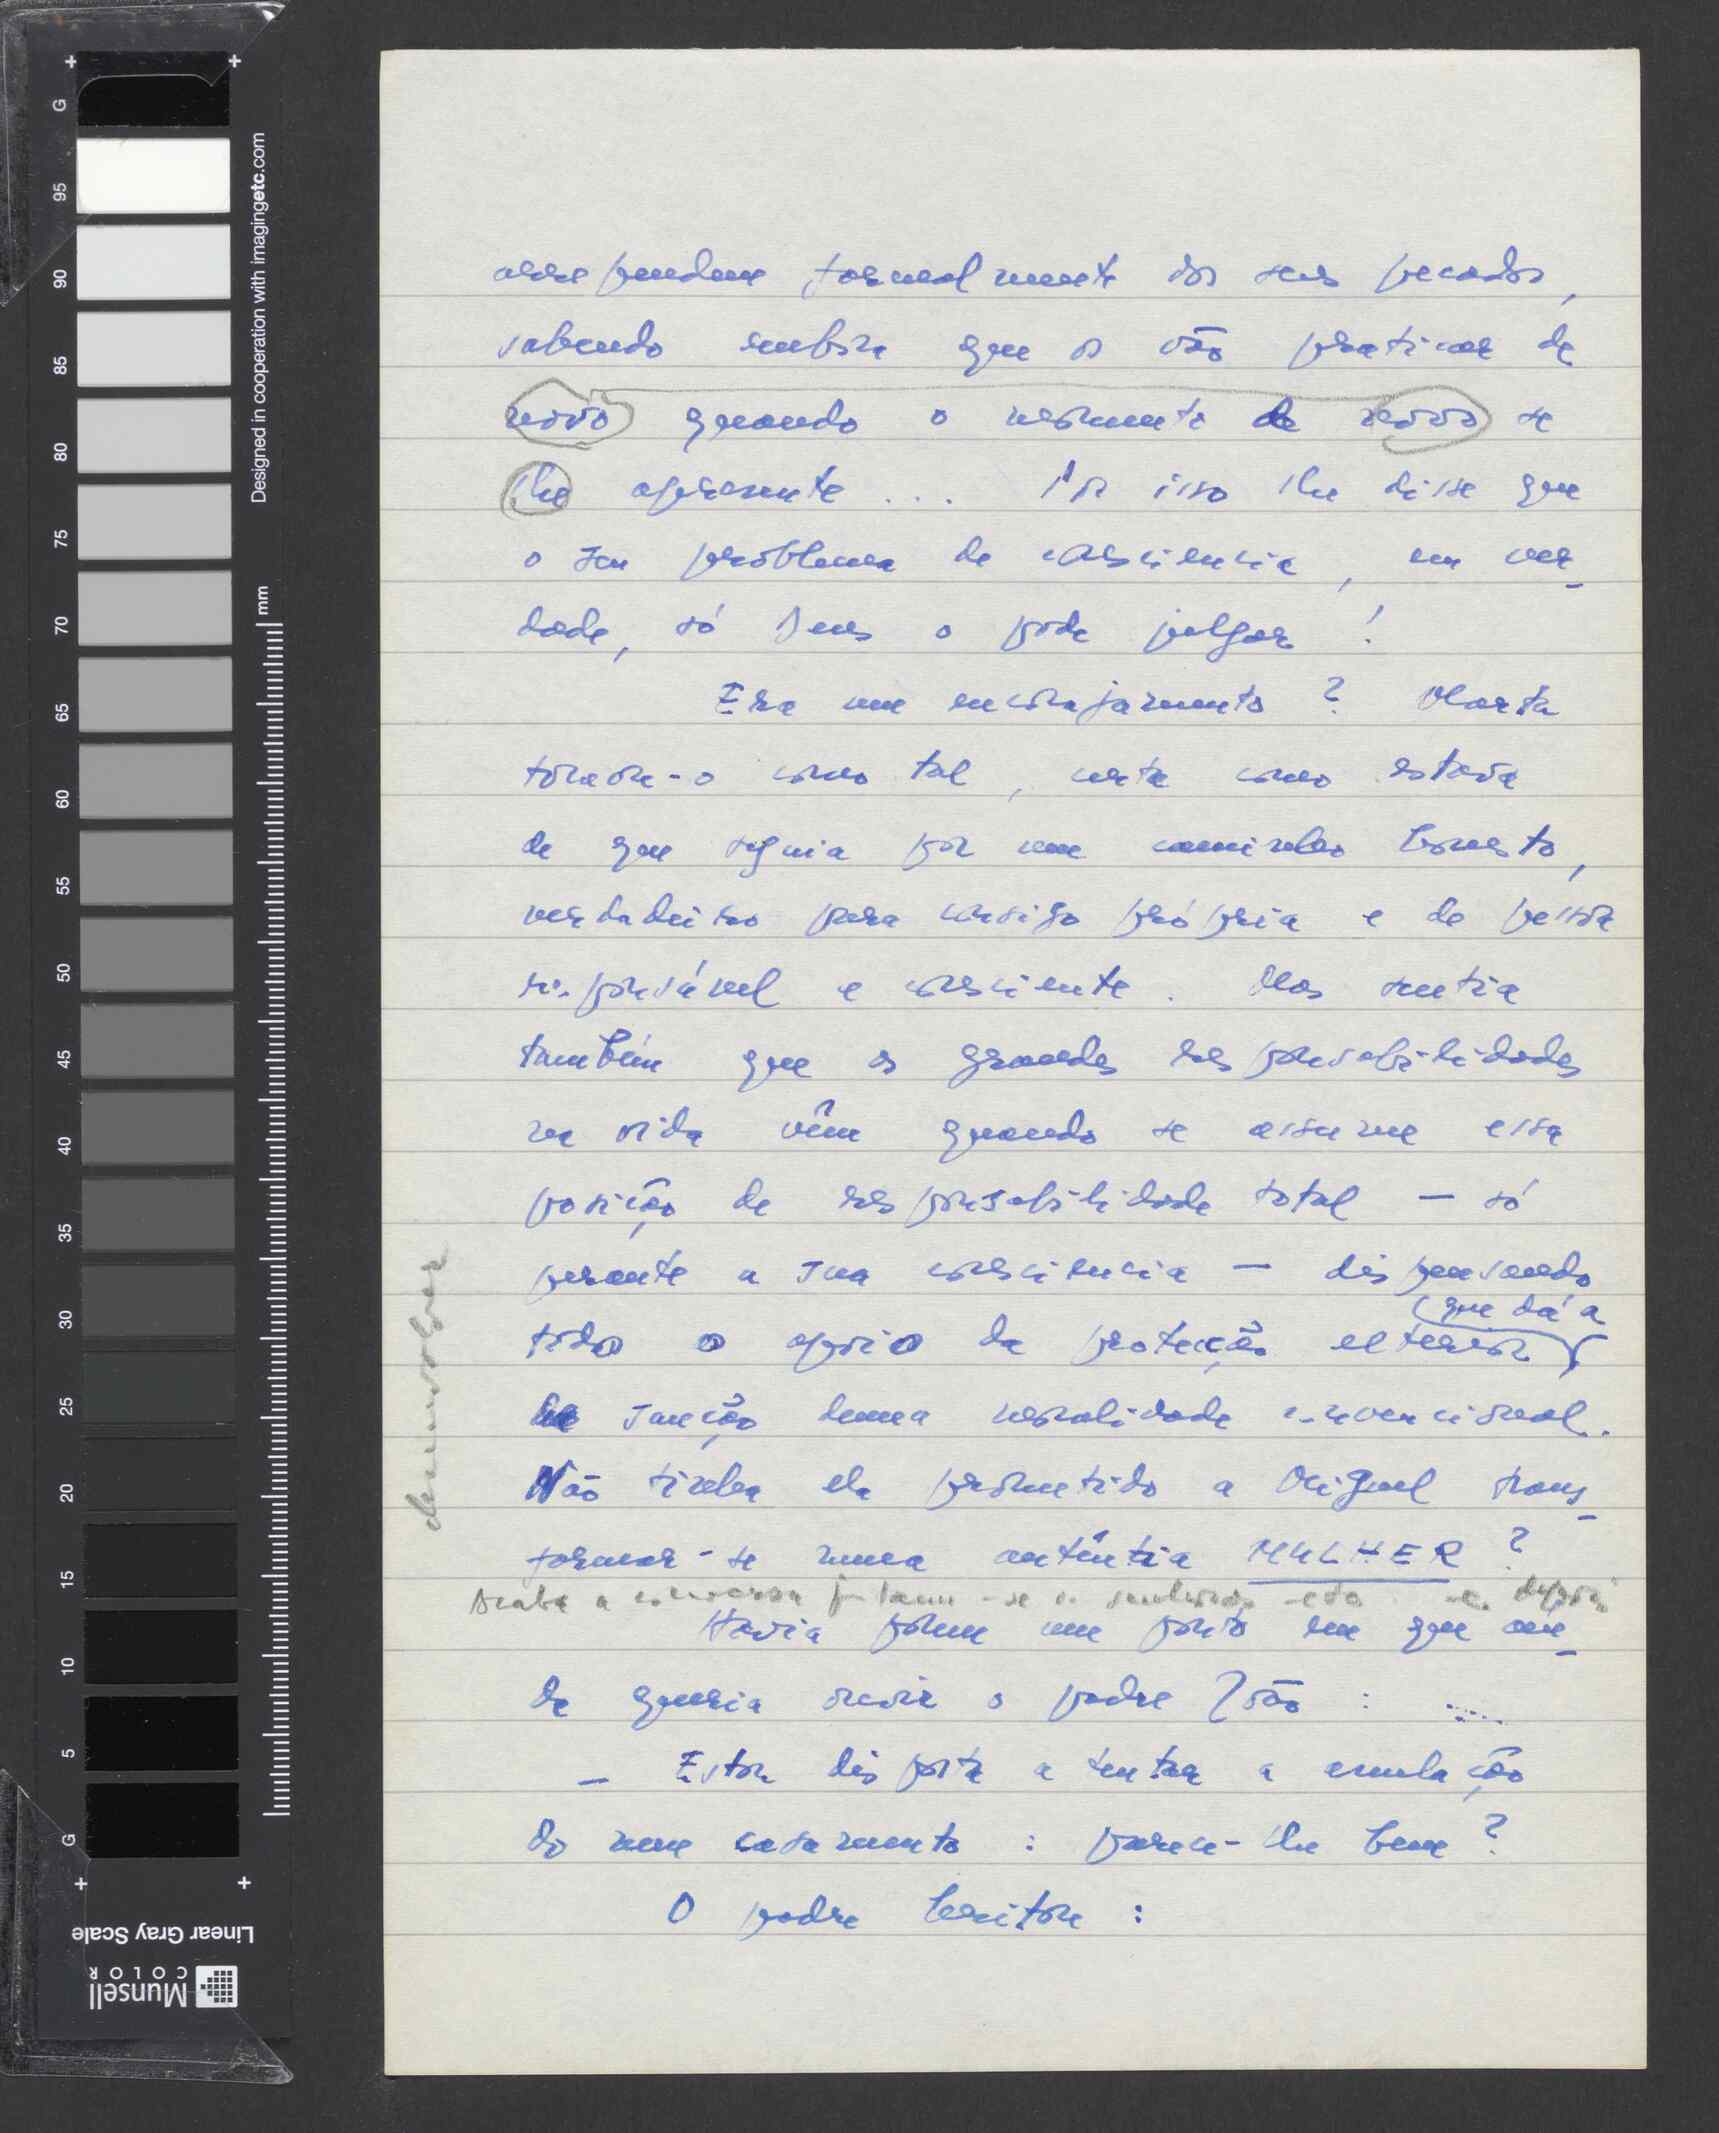 arrependem formalmente dos seus pecados,
sabendo embora que os vão praticar de
novo quando o momento de novo se
lhe apresente... Por isso lhe disse que
o seu problema de consciencia, em ver-
dade, só Deus o pode julgar!
Era um encorajamento? Marta
tomou-o como tal, certa como estava
de que seguia por um caminho honesto,
verdadeiro para consigo própria e de pessoa
responsável e consciente. Mas sentia
também que as grandes responsabilidades
na vida vêm quando se assume essa
posição de responsabilidade total — só
perante a sua consciencia — dispensando
que dá a
todo o apoio da protecção exterior
sanção duma moralidade convencional.
Não tinha ela prometido a Miguel trans-
formar-se numa autêntica MULHER?
Acaba a conversa
Havia porém um ponto em que ain-
da queria ouvir o padre João:
— Estou disposta a tentar a anulação
do meu casamento: parece-lhe bem?
O padre hesitou:
desenvolver
Designed in cooperation with imagingetc.com
mm
G
95
90
85
80
75
70
65
60
55
50
45
40
35
30
25
20
15
10
5
G
Linear Gray Scale
Munsell
COLOR